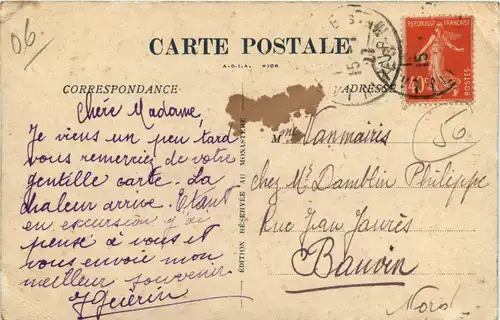 06.
CARTE POSTALE
A.D.I.A. NICE
CORRESPONDANCE
ADRESSE
REPUBLIQUE FRANÇAISE
40c
POSTES
Chère Madame,
Je viens un peu tard
vous remercier de votre
gentille carte. La
chaleur arrive. Etant
en excursion j'ai
pensé à vous et
vous envoie mon
meilleur souvenir
JGuérin
ÉDITION RÉSERVÉE AU MONASTÈRE
Mme Vanmaires
chez Mr Damblin Philippe
Rue Jean Jaurès
Bauvin
Nord
56